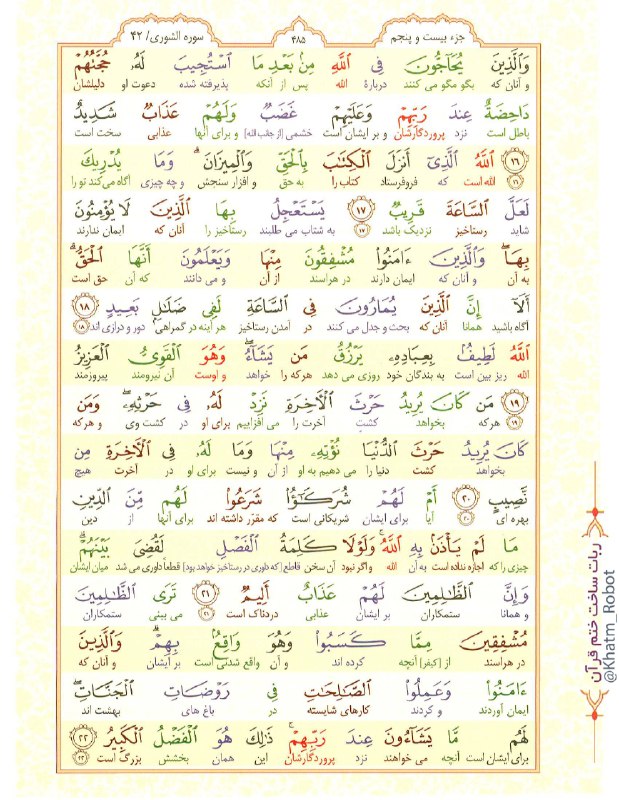 جزء بیست و پنجم
۴۸۵
سوره الشوری/ ۴۲
وَالَّذِینَ یُحَاجُّونَ فِی اللَّهِ مِنۢ بَعۡدِ مَا ٱسۡتُجِیبَ لَهُۥ حُجَّتُهُمۡ
و آنان که بگو مگو می کنند دربارهٔ الله پس از آنکه پذیرفته شده دعوت او دلیلشان
دَاحِضَةٌ عِندَ رَبِّهِمۡ وَعَلَیۡهِمۡ غَضَبٌ وَلَهُمۡ عَذَابٌ شَدِیدٌ
باطل است نزد پروردگارشان و بر ایشان است خشمی [از جانب الله] و برای آنها عذابی سخت است
﴿۱۶﴾ ٱللَّهُ ٱلَّذِیٓ أَنزَلَ ٱلۡکِتَـٰبَ بِٱلۡحَقِّ وَٱلۡمِیزَانَۗ وَمَا یُدۡرِیکَ
۱۶ الله است که فروفرستاد کتاب را به حق و افزار سنجش و چه چیزی آگاه می‌کند تو را
لَعَلَّ ٱلسَّاعَةَ قَرِیبٌ ﴿۱۷﴾ یَسۡتَعۡجِلُ بِهَا ٱلَّذِینَ لَا یُؤۡمِنُونَ
شاید رستاخیز نزدیک باشد ۱۷ به شتاب می طلبند رستاخیز را آنان که ایمان ندارند
بِهَاۖ وَٱلَّذِینَ ءَامَنُواْ مُشۡفِقُونَ مِنۡهَا وَیَعۡلَمُونَ أَنَّهَا ٱلۡحَقُّۗ
به آن و آنان که ایمان دارند در هراسند از آن و می دانند که آن حق است
أَلَآ إِنَّ ٱلَّذِینَ یُمَارُونَ فِی ٱلسَّاعَةِ لَفِی ضَلَـٰلِۭ بَعِیدٍ ﴿۱۸﴾
آگاه باشید همانا آنان که بحث و جدل می کنند در آمدن رستاخیز هر آینه در گمراهی دور و درازی اند ۱۸
ٱللَّهُ لَطِیفُۢ بِعِبَادِهِۦ یَرۡزُقُ مَن یَشَآءُۖ وَهُوَ ٱلۡقَوِیُّ ٱلۡعَزِیزُ
الله ریز بین است به بندگان خود روزی می دهد هرکه را خواهد و اوست آن نیرومند پیروزمند
﴿۱۹﴾ مَن کَانَ یُرِیدُ حَرۡثَ ٱلۡأَخِرَةِ نَزِدۡ لَهُۥ فِی حَرۡثِهِۦۖ وَمَن
۱۹ هرکه بخواهد کشت آخرت را می افزاییم برای او در کشت وی و هرکه
کَانَ یُرِیدُ حَرۡثَ ٱلدُّنۡیَا نُؤۡتِهِۦ مِنۡهَا وَمَا لَهُۥ فِی ٱلۡأَخِرَةِ مِن
بخواهد کشت دنیا را می دهیم به او از آن و نیست برای او در آخرت هیچ
نَّصِیبٍ ﴿۲۰﴾ أَمۡ لَهُمۡ شُرَکَـٰٓؤُاْ شَرَعُواْ لَهُم مِّنَ ٱلدِّینِ
بهره ای ۲۰ آیا برای ایشان شریکانی است که مقرّر داشته اند برای آنها از دین
مَا لَمۡ یَأۡذَنۢ بِهِ ٱللَّهُۚ وَلَوۡلَا کَلِمَةُ ٱلۡفَصۡلِ لَقُضِیَ بَیۡنَهُمۡۗ
چیزی را که اجازه نداده است به آن الله و اگر نبود آن سخن قاطع [که داوری در رستاخیز خواهد بود] قطعاً داوری می شد میان ایشان
وَإِنَّ ٱلظَّـٰلِمِینَ لَهُمۡ عَذَابٌ أَلِیمٌ ﴿۲۱﴾ تَرَی ٱلظَّـٰلِمِینَ
و همانا ستمکاران بر ایشان عذابی دردناک است ۲۱ می بینی ستمکاران
مُشۡفِقِینَ مِمَّا کَسَبُواْ وَهُوَ وَاقِعُۢ بِهِمۡۗ وَٱلَّذِینَ
در هراسند از [کیفر] آنچه کرده اند و آن واقع شدنی است بر ایشان و آنان که
ءَامَنُواْ وَعَمِلُواْ ٱلصَّـٰلِحَـٰتِ فِی رَوۡضَاتِ ٱلۡجَنَّاتِۖ
ایمان آوردند و کردند کارهای شایسته در باغ های بهشت اند
لَهُم مَّا یَشَآءُونَ عِندَ رَبِّهِمۡۚ ذَٰلِکَ هُوَ ٱلۡفَضۡلُ ٱلۡکَبِیرُ ﴿۲۲﴾
برای ایشان است آنچه می خواهند نزد پروردگارشان این همان بخشش بزرگ است ۲۲
ربات ساخت ختم قرآن
@Khatm_Robot